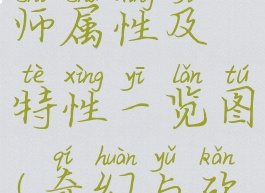 师属性及
tè xìng yī lǎn tú
特性一览图
qí huàn yǔ kǎn
(奇幻与砍